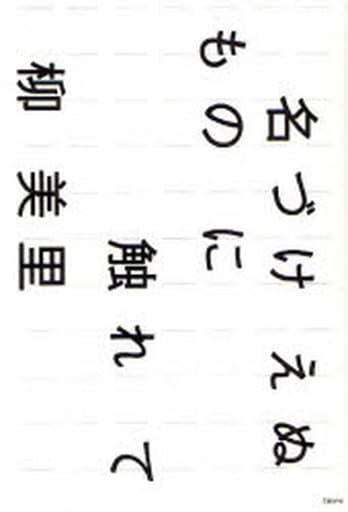 名づけえぬ
ものに
触れて
柳 美里